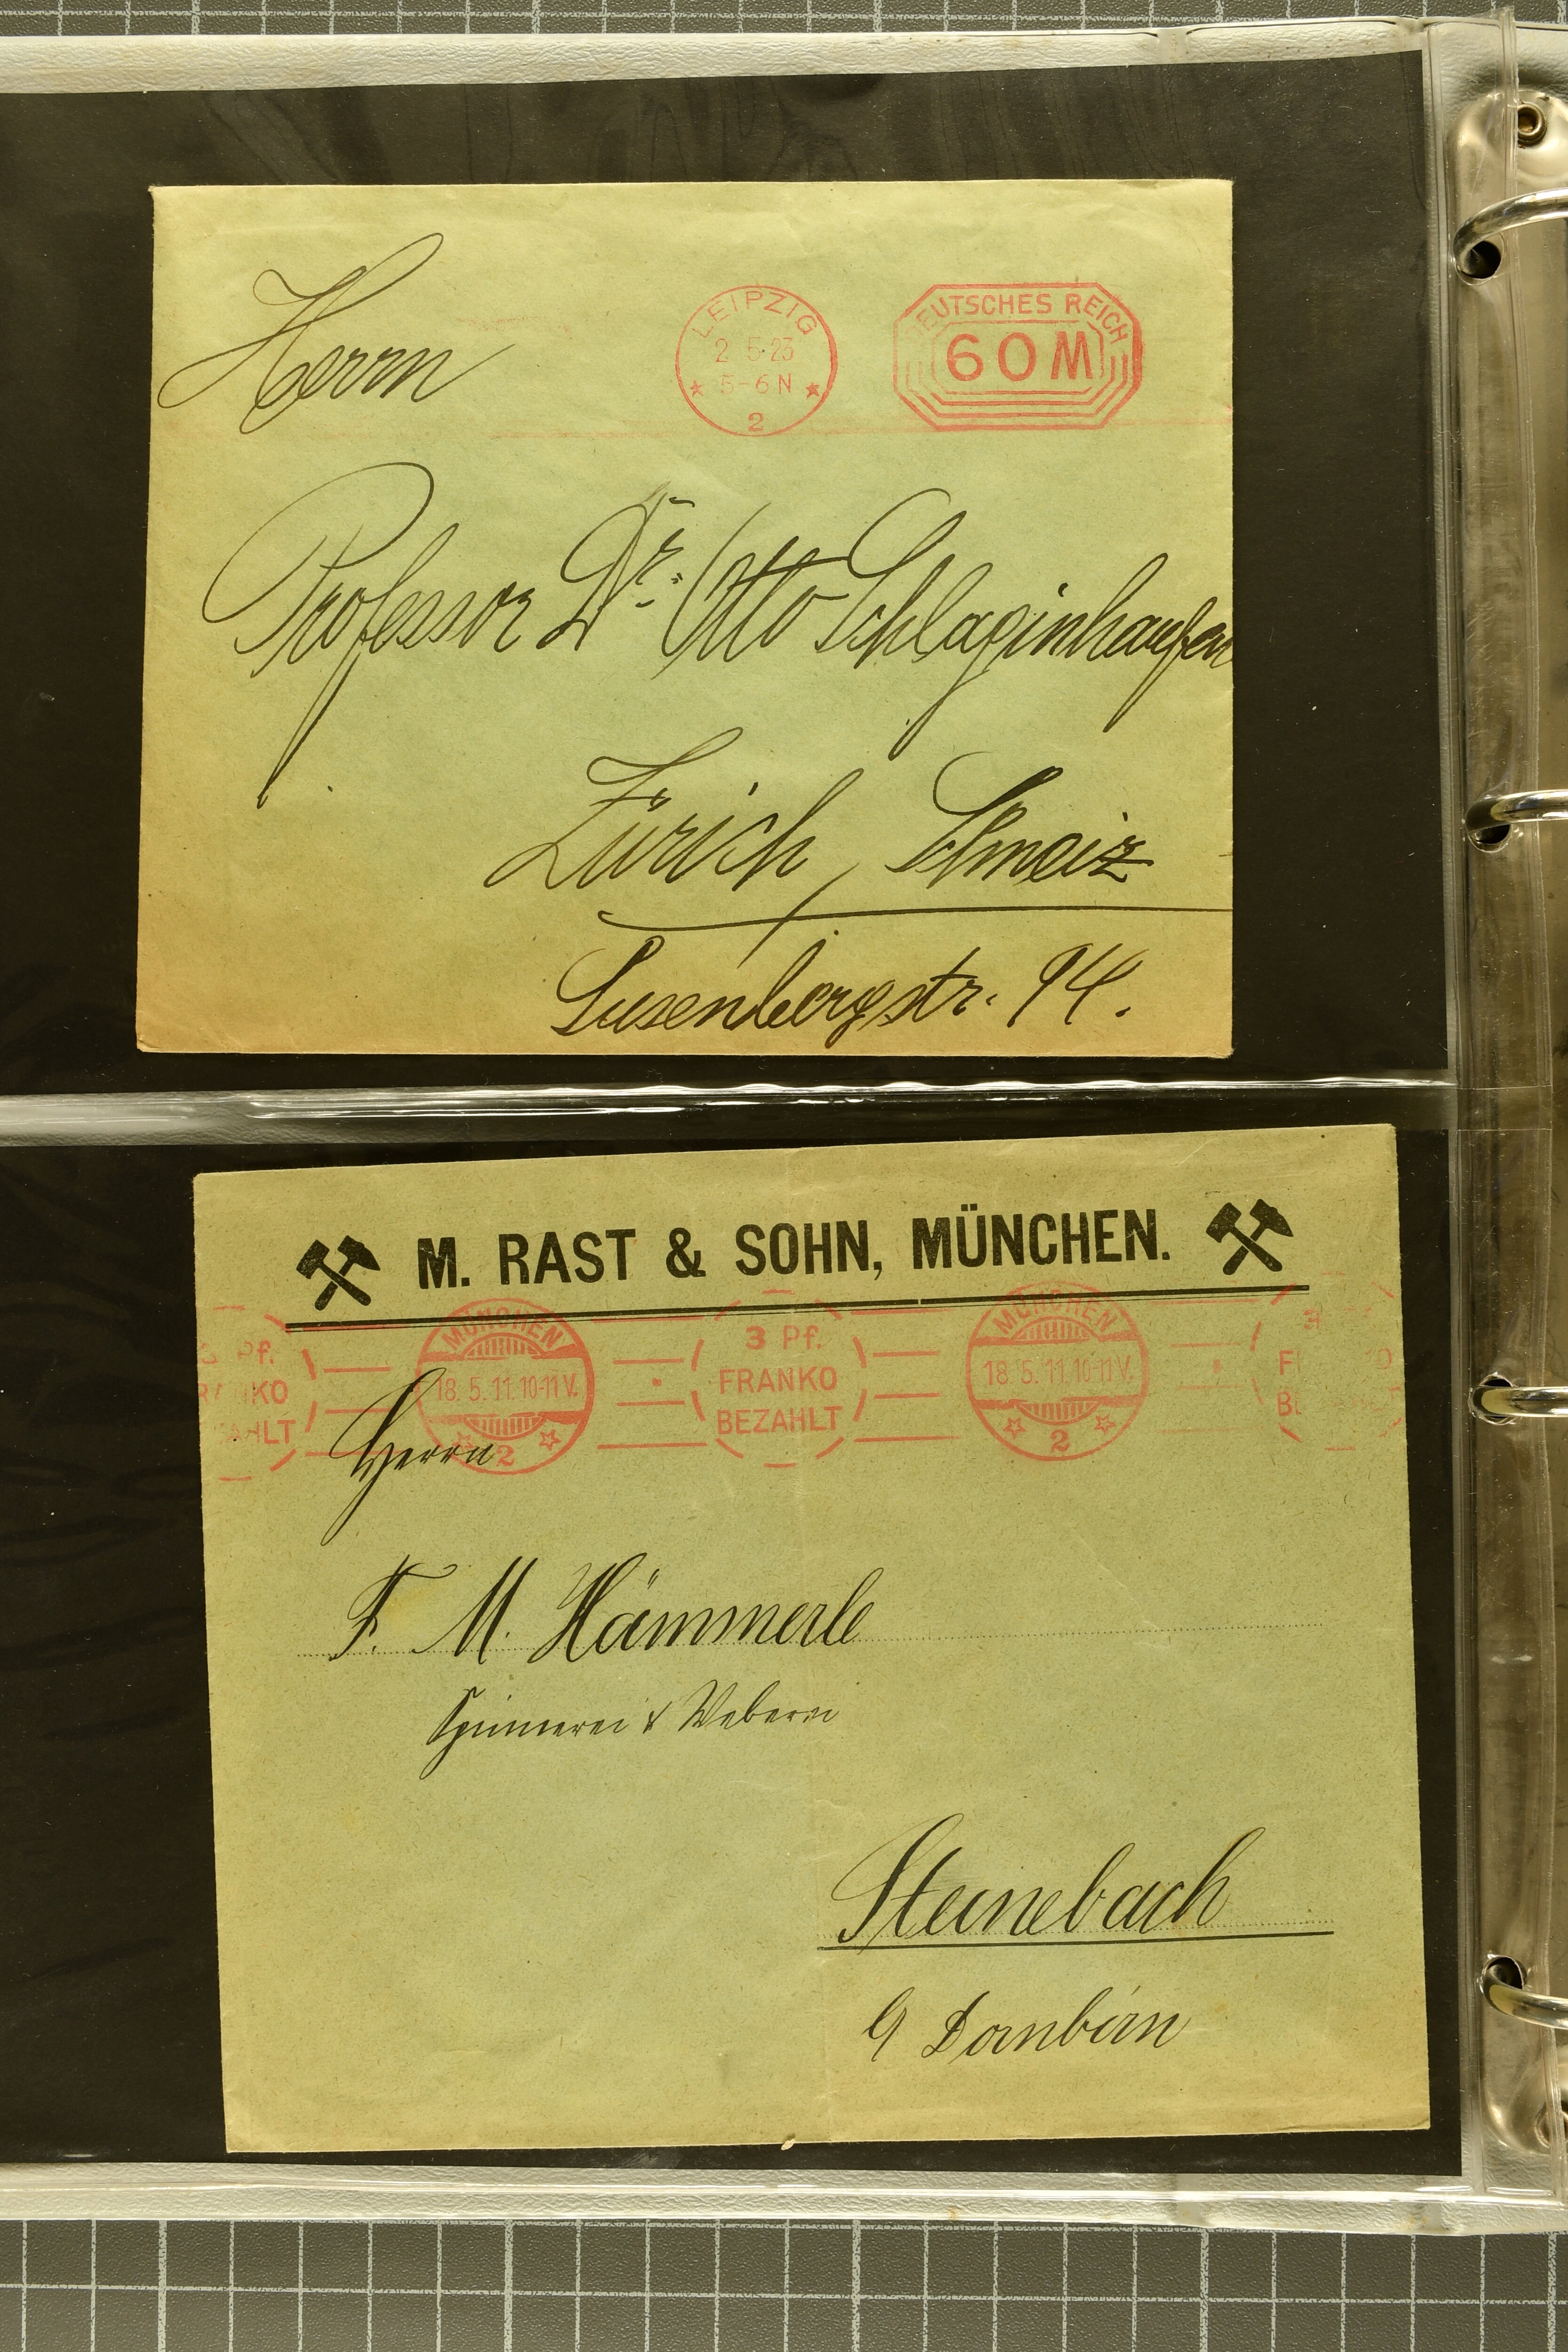 Herrn
LEIPZIG
2 5.23
5-6 N
2
DEUTSCHES REICH
60 M
Professor Dr. Otto Schlaginhaufen
Zürich, Schweiz
Susenbergstr. 94.
M. RAST & SOHN, MÜNCHEN.
3 Pf.
FRANKO
BEZAHLT
MÜNCHEN
18. 5. 11. 10-11 V.
2
3 Pf.
FRANKO
BEZAHLT
MÜNCHEN
18. 5. 11. 10-11 V.
2
Herrn
F. M. Hämmerle
Spinnerei & Weberei
Steinebach
Dornbirn